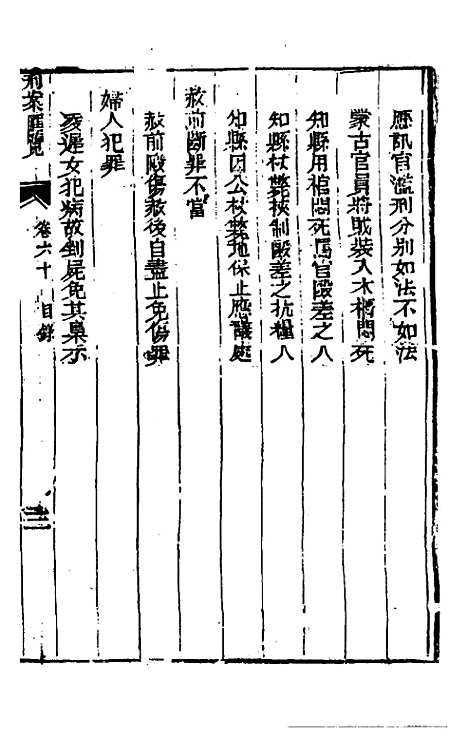 歷訊官濫刑分別如法不如法
蒙古官員將賊裝入木櫃悶死
知縣用棺悶死馬官毆差之人
知縣杖斃挾制毆差之抗糧人
知縣因公杖斃地保止應議處
赦前斷罪不當
赦前毆傷赦後自盡止免傷罪
婦人犯罪
凌遲女犯病故剉屍免其梟示
刑案匯覽
卷六十
目錄
三